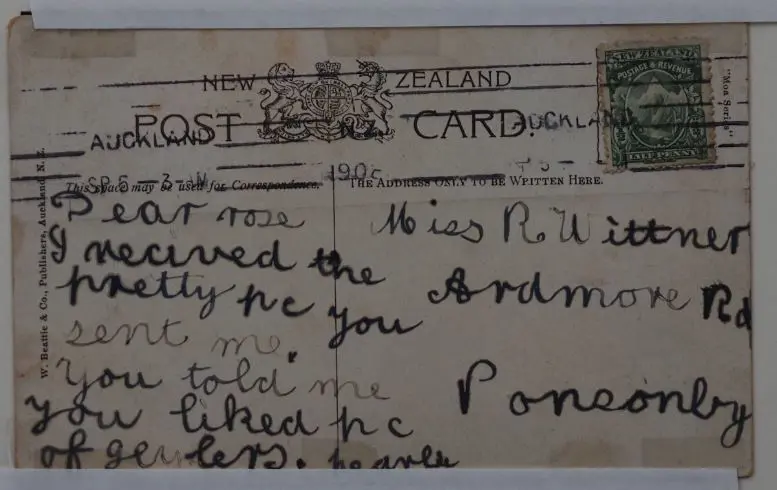 NEW ZEALAND
POST CARD.
NEW ZEALAND
POSTAGE & REVENUE
"Moa Series"
AUCKLAND
N.Z.
AUCKLAND
SP 5 — 3 —
190
This space may be used for Correspondence.
THE ADDRESS ONLY TO BE WRITTEN HERE.
W. Beattie & Co., Publishers, Auckland N. Z.
Dear rose
I recived the
pretty pc you
sent me.
You told me
you liked pc
of
Miss R Wittner
Ardmore Rd
Ponsonby